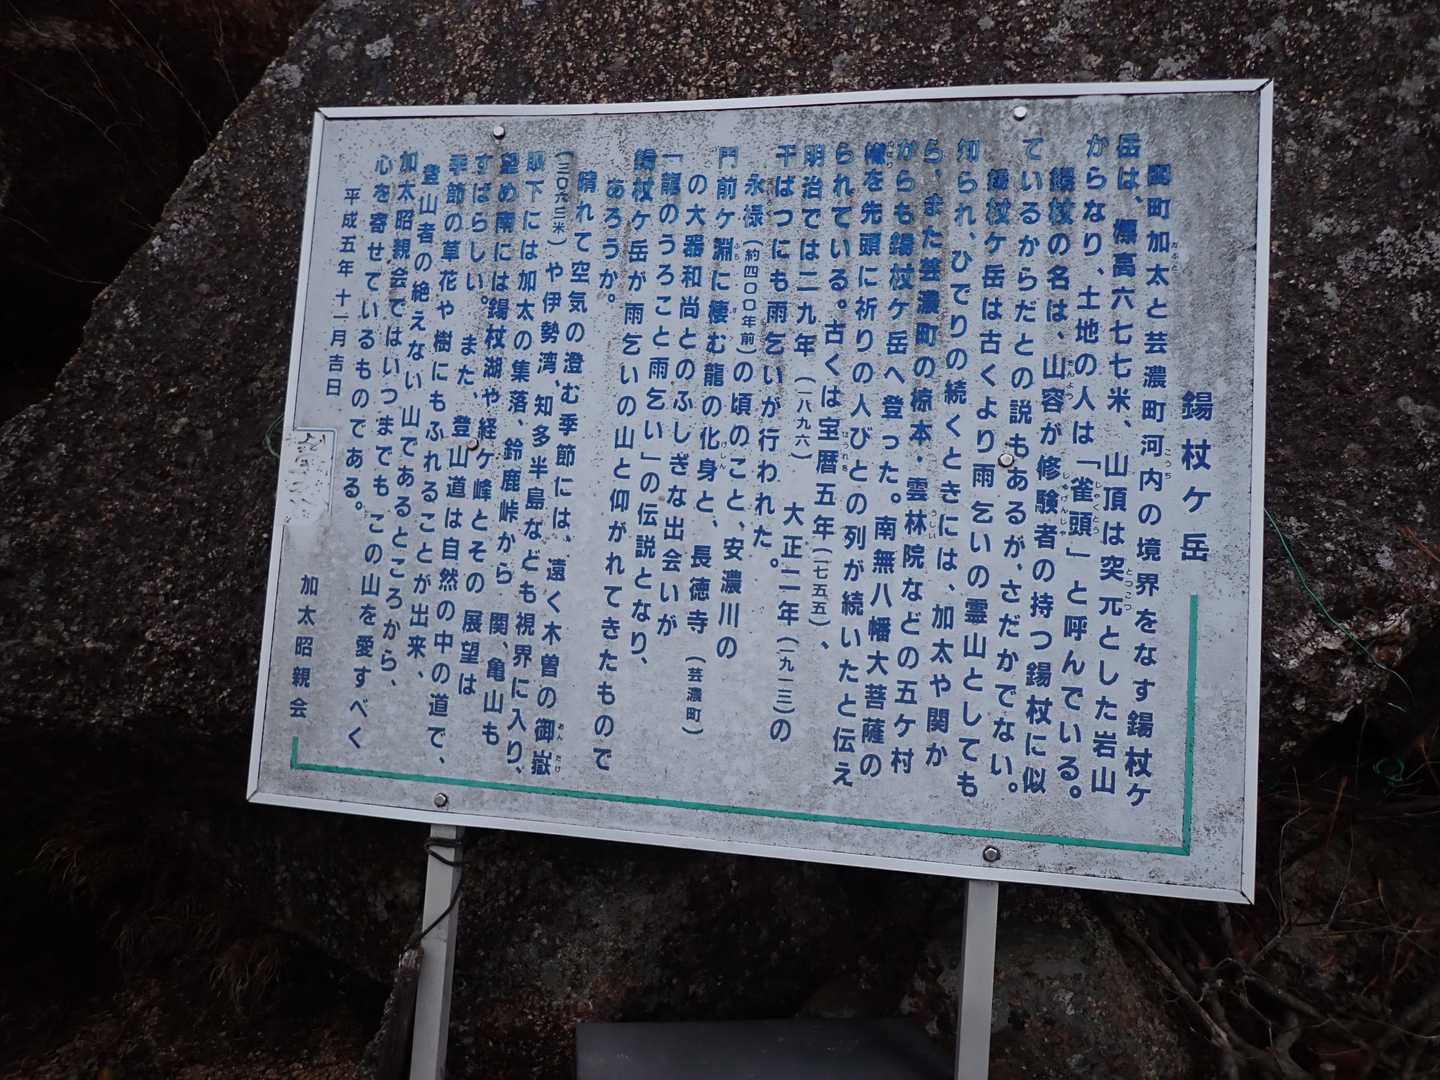 錫杖ケ岳
関町加太と芸濃町河内の境界をなす錫杖ケ
岳は、標高六七七米、山頂は突兀とした岩山
からなり、土地の人は「雀頭」と呼んでいる。
錫杖の名は、山容が修験者の持つ錫杖に似
ているからだとの説もあるが、さだかでない。
錫杖ケ岳は古くより雨乞いの霊山としても
知られ、ひでりの続くときには、加太や関か
ら、また芸濃町の椋本・雲林院などの五ケ村
からも錫杖ケ岳へ登った。南無八幡大菩薩の
幟を先頭に祈りの人びとの列が続いたと伝え
られている。古くは宝暦五年(一七五五)、
明治では二九年(一八九六) 大正二年(一九一三)の
干ばつにも雨乞いが行われた。
永禄(約四〇〇年前)の頃のこと、安濃川の
門前ケ淵に棲む龍の化身と、長徳寺(芸濃町)
の大器和尚とのふしぎな出会いが
「龍のうろこと雨乞い」の伝説となり、
錫杖ケ岳が雨乞いの山と仰がれてきたもので
あろうか。
晴れて空気の澄む季節には、遠く木曽の御嶽
(三〇六三米)や伊勢湾、知多半島なども視界に入り、
眼下には加太の集落、鈴鹿峠から 関、亀山も
望め南には錫杖湖や経ケ峰とその 展望は
すばらしい。また、登山道は自然の中の道で、
季節の草花や樹にもふれることが出来、
登山者の絶えない山であるところから、
加太昭親会ではいつまでも、この山を愛すべく
心を寄せているものである。
平成五年十一月吉日
加太昭親会